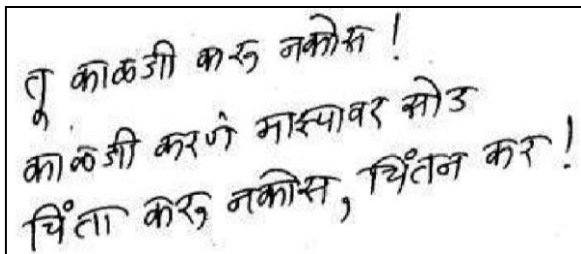 तू काळजी करु नकोस!
काळजी करणे माझ्यावर सोड
चिंता करु नकोस, चिंतन कर!